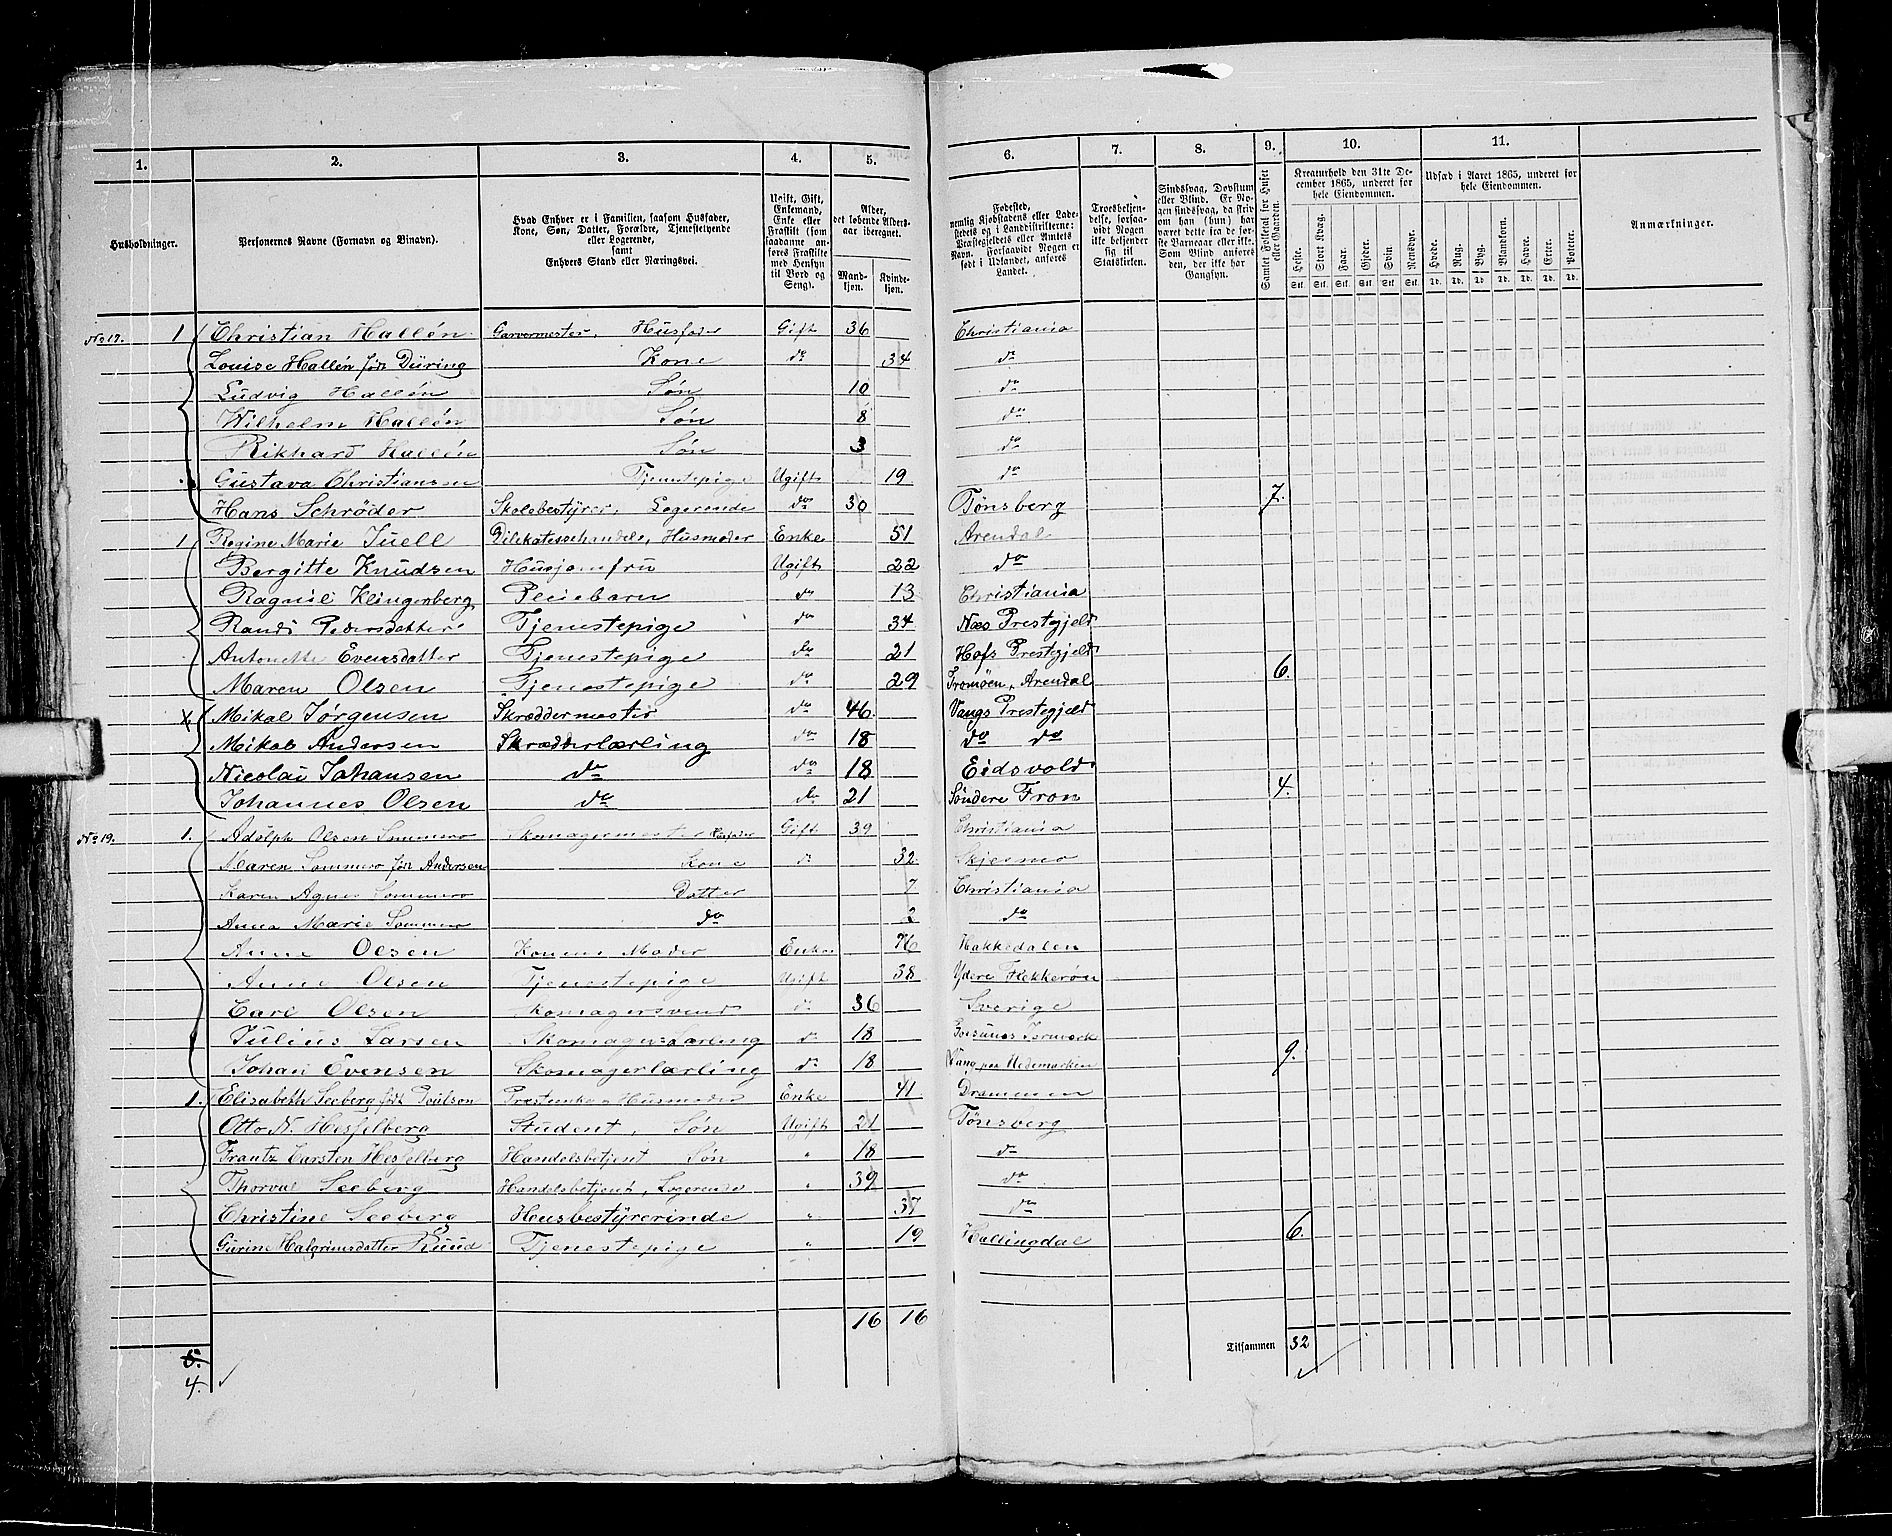 1. 2. 3. 4. 5. 6. 7. 8. 9. 10. 11.
Husholdninger.
Personernes Navne (Fornavn og Binavn).
Hvad Enhver er i Familien, saasom Husfader, Kone, Søn, Datter, Forældre, Tjenestetyende eller Logerende, samt Enhvers Stand eller Næringsvei.
Ugift, Gift, Enkemand, Enke eller Fraskilt (som saadanne anføres Fraskilte med Hensyn til Bord og Seng).
Alder, det løbende Aldersaar iberegnet.
Mandkjøn. Kvindekjøn.
Fødested, nemlig Kjøbstadens eller Ladestedets og i Landdistrikterne: Præstegjeldets eller Amtets Navn. Forsaavidt Nogen er født i Udlandet, anføres Landet.
Troesbekjendelse, forsaavidt Nogen ikke bekjender sig til Statskirken.
Sindssvag, Døvstum eller Blind. Er Nogen sindssvag, da skrives om han (hun) har været dette fra de første Barneaar eller ikke. Som Blind anføres den, der ikke har Gangsyn.
Samlet Folketal for Huset eller Gaarden.
Kreaturhold den 31te December 1865, underet for hele Eiendommen.
Heste. Stort Kvæg. Faar. Gjeder. Svin. Rensdyr.
Stk. Stk. Stk. Stk. Stk. Stk.
Udsæd i Aaret 1865, underet for hele Eiendommen.
Hvede. Rug. Byg. Blandkorn. Havre. Erter. Poteter.
Td. Td. Td. Td. Td. Td. Td.
Anmærkninger.
No 17. 1 Christian Hallén Garvermester, Husfader Gift 36 Christiania
Louise Hallén født Düring Kone do 34 do
Ludvig Hallén Søn 10 do
Wilhelm Hallén Søn 8 do
Rikhard Hallén Søn 3 do
Gustava Christiansen Tjenestepige Ugift 19 do
Hans Schrøder Skolebestyrer, Logerende do 30 Tønsberg 7.
1 Regine Marie Juell Husmoder Enke 51 Arendal
Bergitte Knudsen Husjomfru Ugift 22 do
Ragnil Klingenberg Pleiebarn do 13 Christiania
Randi Pedersdatter Tjenestepige do 34 Næs Prestegjeld
Antonette Evensdatter Tjenestepige do 21 Hofs Prestegjeld
Maren Olsen Tjenestepige do 29 Tromøen, Arendal 6.
Mikal Jørgensen Skræddermester do 46. Vangs Prestegjeld
Mikal Andersen Skrædderlærling do 18 do do
Nicolai Johansen do do 18 Eidsvold
Johannes Olsen do do 21 Søndere Fron 4.
No 19. 1. Adolph Olsen Sommero Skomagermester Husfader Gift 39 Christiania
Maren Sommero født Andersen Kone do 32. Skjesmo
Karen Agnes Sommero Datter 7 Christiania
Anna Marie Sommero do 2 do
Anne Olsen Konens Moder Enke 76 Hakkedalen
Anne Olsen Tjenestepige Ugift 38 Ydere Flekkerøn
Carl Olsen Skomagersvend do 36 Sverige
Julius Larsen Skomagerlærling do 18
Johan Evensen Skomagerlærling do 18 Vang paa Hedemarken 9.
1. Elisabeth Seeberg født Poulson Husmoder Enke 41 Drammen
Otto N. Hesselberg Student, Søn Ugift 21 Tønsberg
Frantz Carsten Hesselberg Handelsbetjent Søn " 18 do
Thorval Seeberg Handelsbetjent, Logerende " 39 do
Christine Seeberg Husbestyrerinde " 37 do
Gurine Halgrimsdatter Ruud Tjenestepige " 19 Hallingdal 6.
16 16
Tilsammen 32
5.
4.